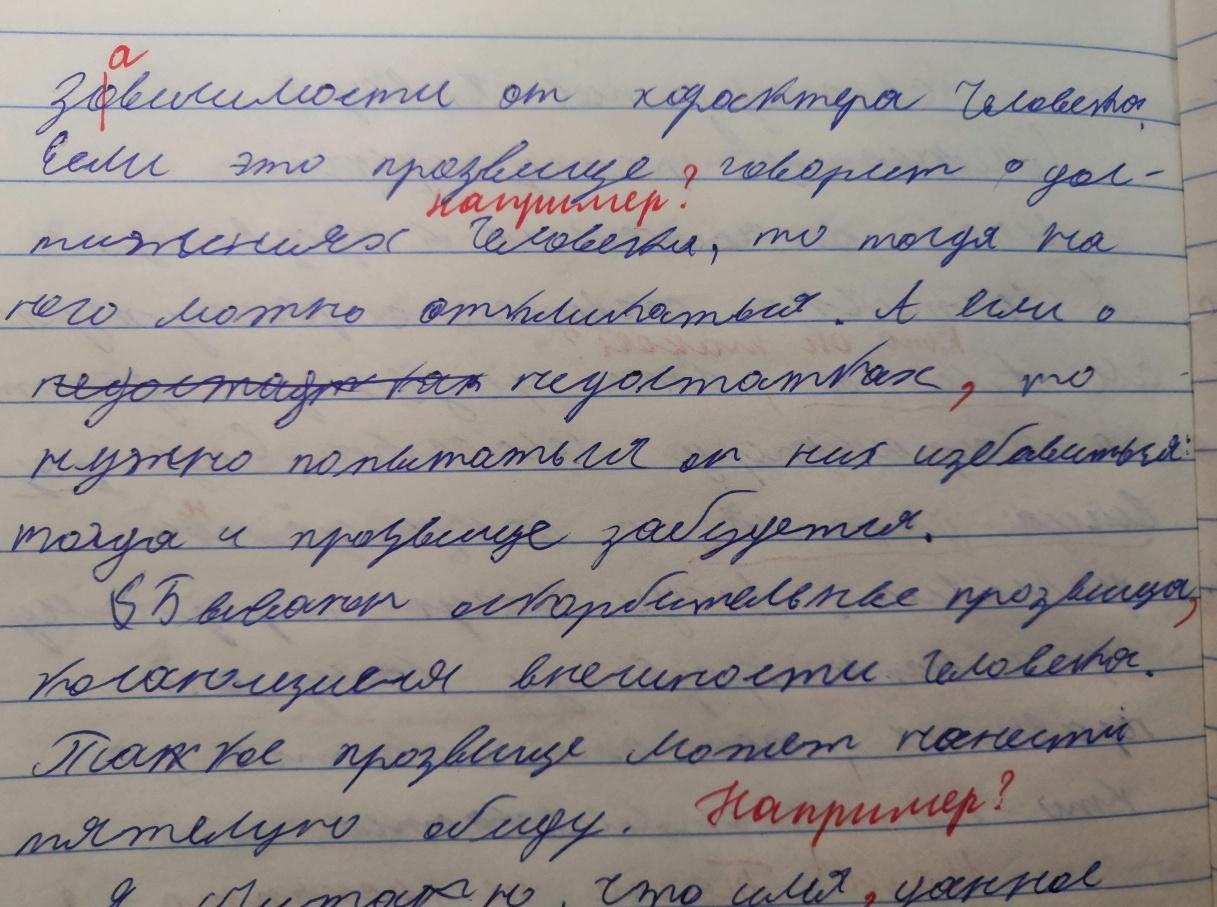 а
Зовисимости от характера человека.
Если это прозвище ? говорит о дос-
например?
тижениях человека, то тогда на
него можно откликаться. А если о
недостадтках недостатках, то
нужно попытаться от них избавиться:
тогда и прозвище забудется.
Бывают оскорбительные прозвища,
косающиеся внешности человека.
Также прозвище может нанести
тяжелую обиду. Например?
Я считаю, что имя, данное